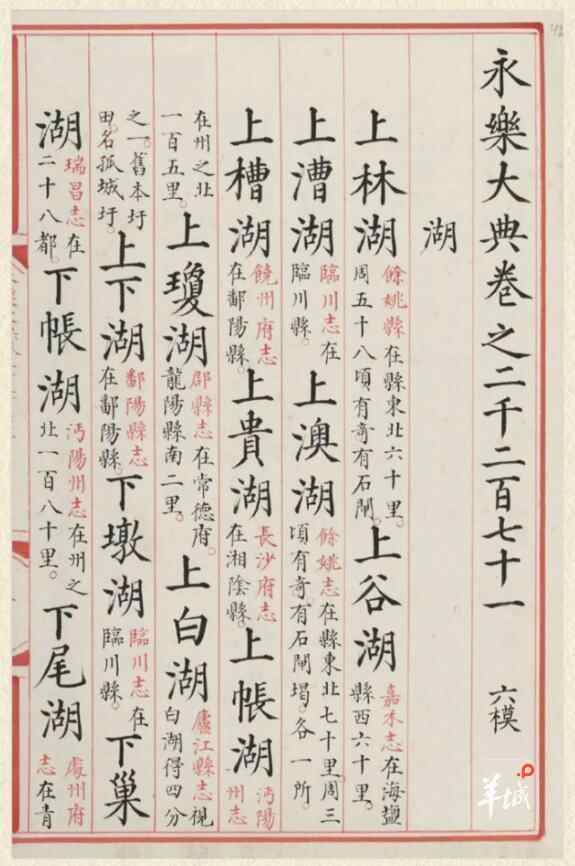 永樂大典卷之二千二百七十一 六模
湖
上林湖餘姚縣在縣東北六十里。周五十八頃有奇有石閘。上谷湖嘉禾志在海鹽縣西六十里。
上漕湖臨川志在臨川縣。上澳湖餘姚志在縣東北七十里周三頃有奇有石閘堨各一所。
上槽湖饒州府志在鄱陽縣。上貴湖長沙府志在湘陰縣。上帳湖沔陽州志
在州之北一百五里。上瓊湖郡縣志在常德府。龍陽縣南二里。上白湖廬江縣志視白湖得四分
之一。舊本圩田名孤城圩。上下湖鄱陽縣志在鄱陽縣。下墩湖臨川志在臨川縣。下巢
湖瑞昌志在二十八都。下帳湖沔陽州志在州之北一百八十里。下尾湖處州府志在青
羊城